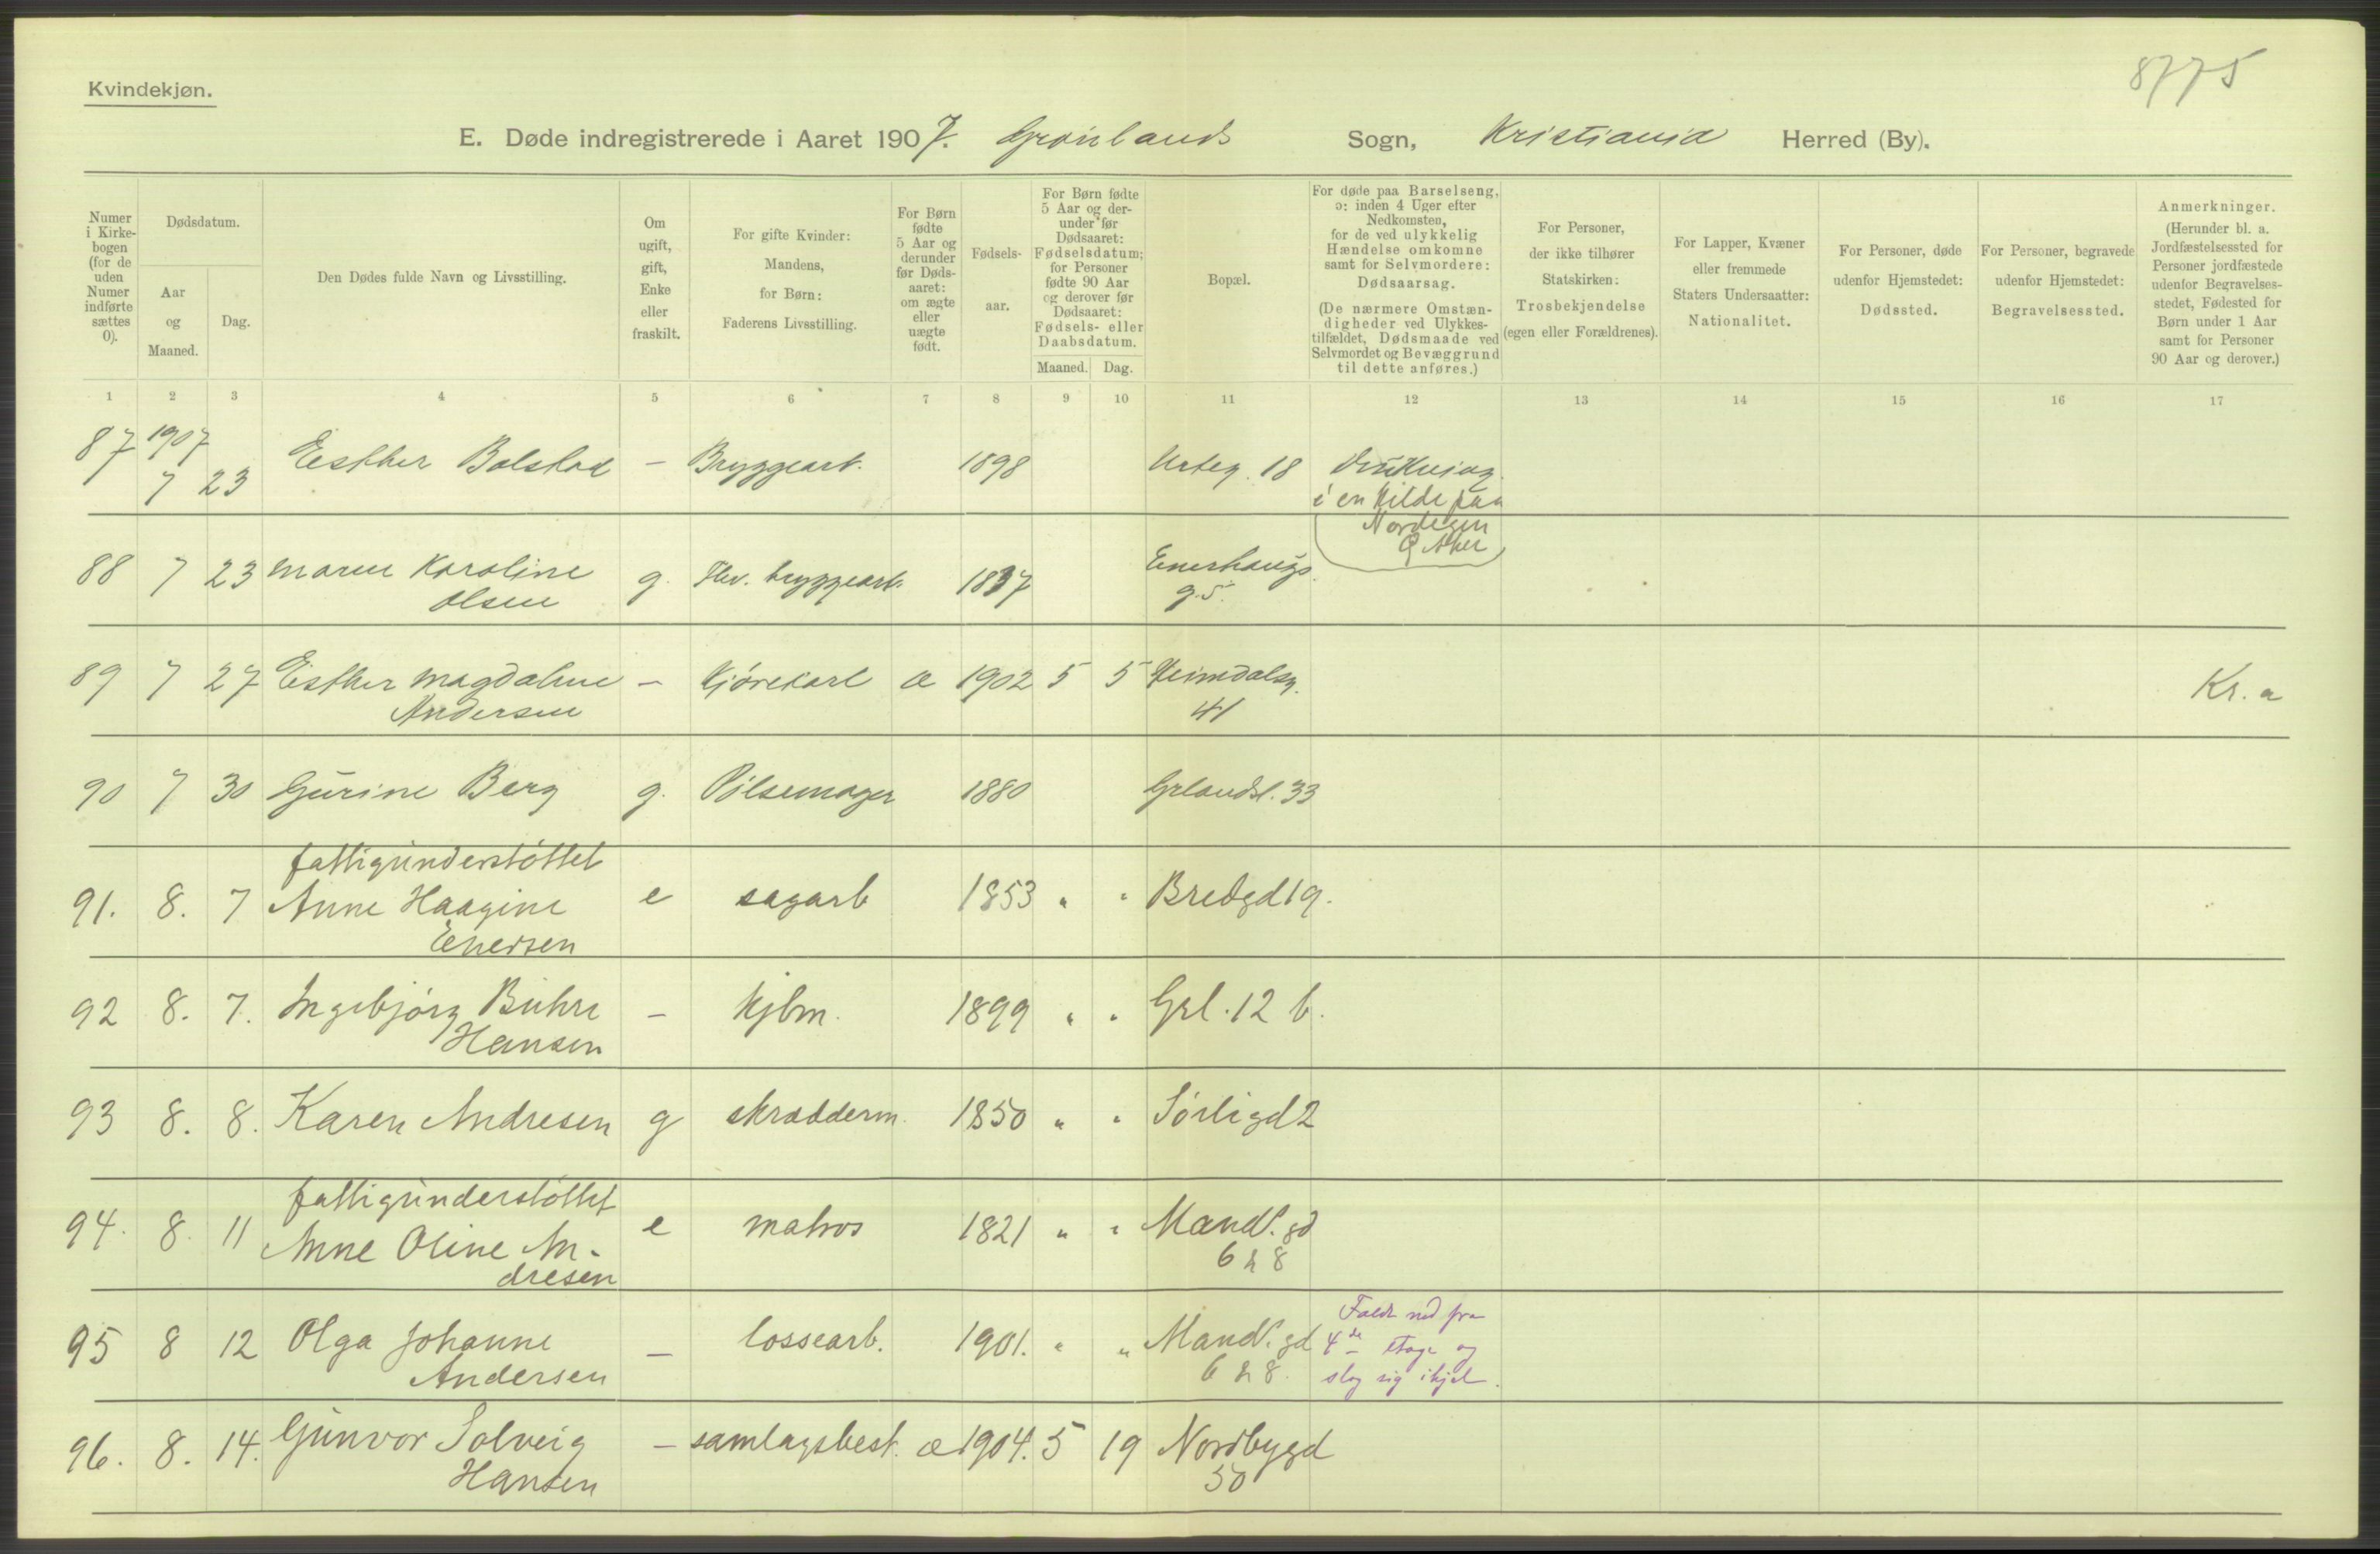 8775
Kvindekjøn.
E. Døde indregistrerede i Aaret 1907. Grønlands Sogn, Kristiania Herred (By).
Numer i Kirkebogen (for de uden Numer indførte sættes 0).
Dødsdatum.
Aar og Maaned.
Dag.
Den Dødes fulde Navn og Livsstilling.
Om ugift, gift, Enke eller fraskilt.
For gifte Kvinder: Mandens, for Børn: Faderens Livsstilling.
For Børn fødte 5 Aar og derunder før Dødsaaret: om ægte eller uægte født.
Fødselsaar.
For Børn fødte 5 Aar og derunder før Dødsaaret: Fødselsdatum; for Personer fødte 90 Aar og derover før Dødsaaret: Fødsels- eller Daabsdatum.
Maaned. Dag.
Bopæl.
For døde paa Barselseng, ɔ: inden 4 Uger efter Nedkomsten, for de ved ulykkelig Hændelse omkomne samt for Selvmordere: Dødsaarsag.
(De nærmere Omstændigheder ved Ulykkestilfældet, Dødsmaade ved Selvmordet og Bevæggrund til dette anføres.)
For Personer, der ikke tilhører Statskirken: Trosbekjendelse (egen eller Forældrenes).
For Lapper, Kvæner eller fremmede Staters Undersaatter: Nationalitet.
For Personer, døde udenfor Hjemstedet: Dødssted.
For Personer, begravede udenfor Hjemstedet: Begravelsessted.
Anmerkninger.
(Herunder bl. a. Jordfæstelsessted for Personer jordfæstede udenfor Begravelsesstedet, Fødested for Børn under 1 Aar samt for Personer 90 Aar og derover.)
1 2 3 4 5 6 7 8 9 10 11 12 13 14 15 16 17
87 1907
7 23 Esther Bolstad – Bryggearb. 1898 Urteg. 18 Drukning
i en Kilde paa
88 7 23 Maren Karoline Olsen g. bryggearb. 1837 Enerhaugs
g. 5.
89 7 27 Esther Magdalene Andersen – Kjørekarl æ 1902 5 5 Heimdalsg.
41 Kr. a
90 7 30 Gurine Berg g. Pølsemager 1880 Grlandsl. 33
fattigunderstøttet
91. 8. 7 Anne Haagine Enersen e sagarb 1853 " " Bredgd 19.
92 8. 7. Ingebjørg Buhre Hansen – kjbm. 1899 " " Grl. 12 b.
93 8. 8. Karen Andresen g skrædderm. 1850 " " Sørligd 2
fattigunderstøttet
94. 8. 11 Anne Oline An-
dresen e matros 1821 " " Mandl. gd
6 & 8
95 8 12 Olga Johanne Andersen – lossearb. 1901. " " Mandl. gd
6 & 8. Faldt ned fra
4de etage og
slog sig ihjel.
96. 8. 14. Gunvor Solveig Hansen – samlagsbest. æ 1904. 5 19 Nordbygd
50